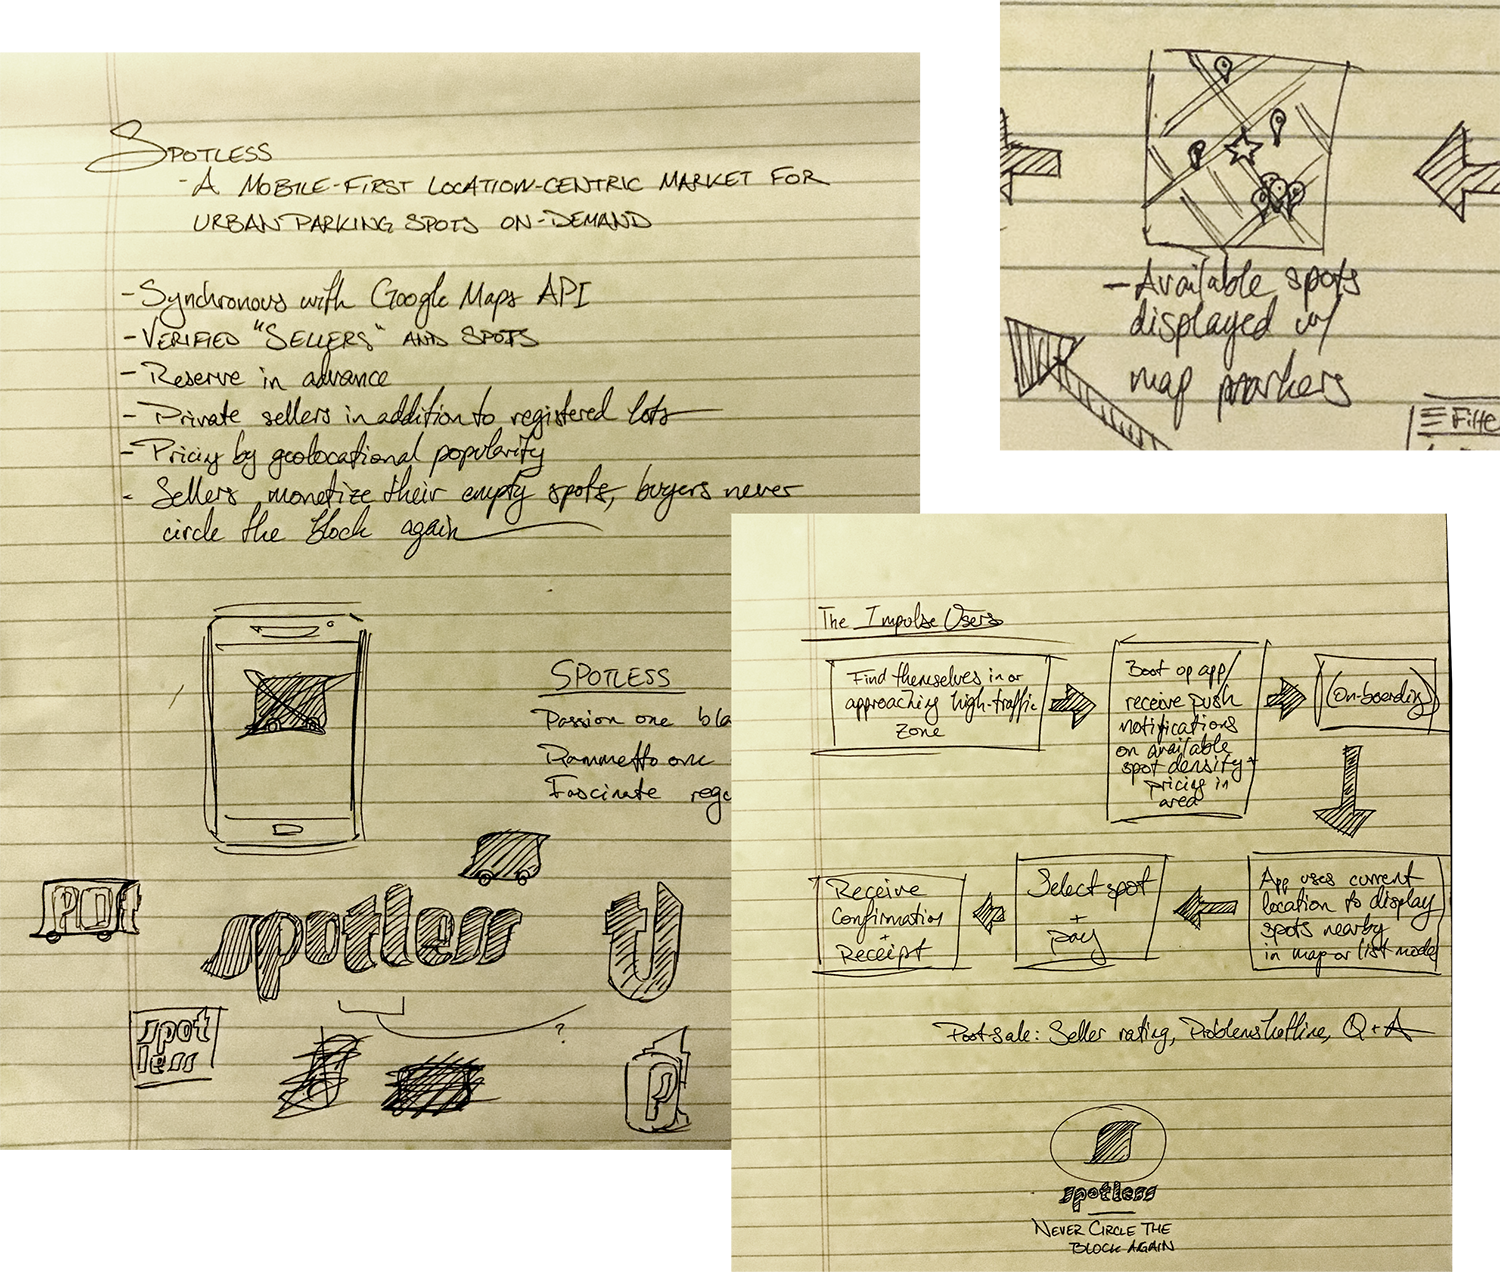 SPOTLESS
- A MOBILE-FIRST LOCATION-CENTRIC MARKET FOR
URBAN PARKING SPOTS ON-DEMAND
- Synchronous with Google Maps API
- VERIFIED "SELLERS" AND SPOTS
- Reserve in advance
- Private sellers in addition to registered lots
- Pricing by geolocational popularity
- Sellers monetize their empty spots, buyers never
circle the block again
SPOTLESS
Passion one
one
Fascinate
spotless
spot
less
?
P
- Available spots
displayed w/
map markers
The Impulse Users
Find themselves in or
approaching high-traffic
zone
Boot up app/
receive push
notifications
on available
spot density +
pricing in
area
(On-boarding)
App uses current
location to display
spots nearby
in map or list mode
Select spot
+
pay
Receive
Confirmation
+
Receipt
Post sale: Seller rating, Problems hotline, Q + A
spotless
NEVER CIRCLE THE
BLOCK AGAIN